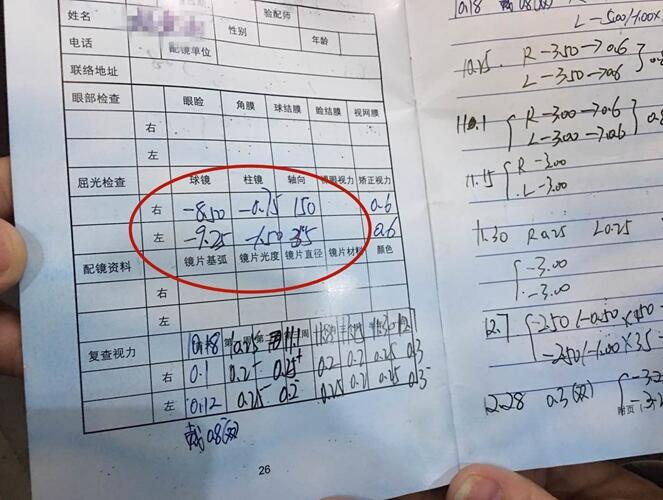 姓名
验配师
性别
年龄
电话
配镜单位
联络地址
眼部检查 眼睑 角膜 球结膜 睑结膜 视网膜
右
左
屈光检查 球镜 柱镜 轴向 裸眼视力 矫正视力
右 -8.50 -0.75 150 0.6
左 -9.25 -1.50 35 0.6
配镜资料 镜片基弧 镜片光度 镜片直径 镜片材料 颜色
右
左
复查视力
右 0.1 0.25 0.25+ 0.2 0.2 0.25 0.3
左 0.12 0.25 0.2 0.25 0.2 0.25 0.3
戴 0.8(双)
26
10.18
L -5.00/-1.00x
10.25. R -3.50→0.6
L -3.50→0.6
11.1 R -3.00→0.6
L -3.00→0.6
11.15 R -3.00
L -3.00
11.30 R 0.25 L 0.25
-3.00
-3.00
12.7 -2.50/-0.50×
-2.50/-1.00×35
12.28 0.3(双)